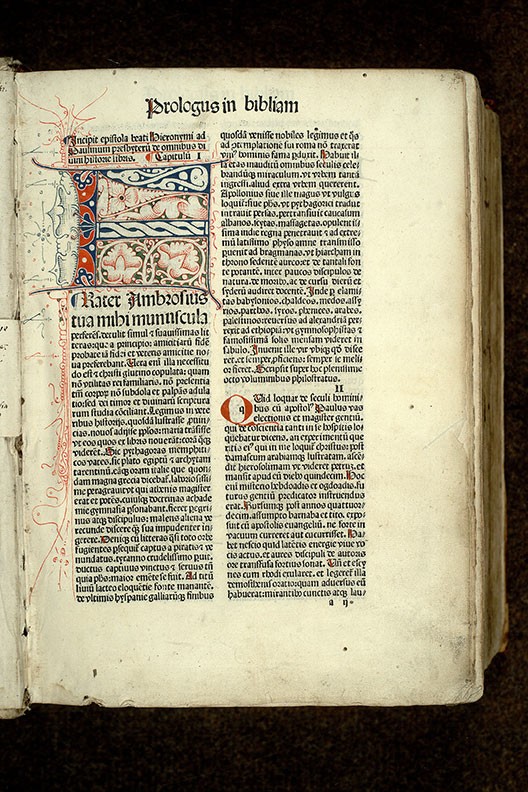 Prologus in bibliam
Incipit epistola beati Hieronymi ad
Paulinum presbyterū de omnibus di
uine historie libris. Capitulū I
FRater Ambrosius
tua mihi munuscula
perferēs. detulit simul ⁊ suauissimas lit
teras: que a principio amiciciarū fidē
probate iā fidei ⁊ veteris amicitie noua
preferebant. Uera enī illa necessitu
do est ⁊ christi glutino copulata: quam
nō vtilitas rei familiaris. nō presentia
tm̄ corporū nō subdola ⁊ palpās adula
tio. sed dei timor ⁊ diuinarū scriptura
rum studia cōciliant. Legimus in vete
ribus historijs. quosdā lustrasse ,puin
cias. nouos adijsse pplos: maria trāsisse
vt eos quos ex libris nouerāt: corā q̄q̨
viderēt. Sic pythagoras memphiti
cos vates. sic plato egiptū ⁊ architam
tarentinū. eāq̨ oram italie que quon
dam magna grecia dicebaf. laboriosissi
me peragrauit: vt qui athenis magister
erat ⁊ potēs. cuiusq̨ doctrinas achade
mie gymnasia psonabant. fieret pegri
nus atq̨ discipulus: malens aliena ve
recunde discere q̄ sua impudenter in
gerere. Deniq̨ cū litteras q̄si toto orbe
fugientes psequif captus a piratis ⁊ ve
nundatus. tyranno crudelissimo paruit.
ductus captiuus vinctus ⁊ seruus. tn̄
quia phs: maior emēte se fuit. Ad titū
liuiū lacteo eloquētie fonte manantē.
de vltimis hyspanie galliarūq̨ finibus
quosdā venisse nobiles legimus: et q̄s
ad ꝯtemplatione sui roma nō traxerat.
vni⁹ hominis fama pduxit. Habuit il
la etas inauditū omnibus seculis cele
brandūq̨ miraculum. vt vrbem tantā
ingressi. aliud extra vrbem quererent.
Apollonius siue ille magus vt vulgus
loquit̄: siue phs. vt pythagorici tradūt
intrauit persas. pertransiuit caucasum
albanos. scytas. massagetas. opulentis
sima indie regna penetrauit: ⁊ ad extre
mū latissimo physo amne transmisso
puenit ad bragmanas. vt hiarcham in
throno sedentē aureo: et de tantali fon
te potantē. inter paucos discipulos de
natura. de morib⁹. ac de cursu dierū et
syderū audiret docentē. Inde p elami
tas babylonios. chaldeos. medos. assy
rios. parthos. syros. phenices. arabes.
palestinos. reuersus ad alexandriā per
rexit ad ethiopiā: vt gymnosophistas ⁊
famosissimā solis mensam videret in
sabulo. Inuenit ille vir vbiq̨ qd̄ disce
ret: et semper ,pficiens: semper se melior
fieret. Scripsit super hoc plenissime
octo voluminibus philostratus.
II
QUid loquar de seculi homini
bus cū apostol⁹ Paulus vas
electionis et magister gentiū.
qui de cōscientia tanti in se hospitis lo
quebatur dicens. an experimentū que
ritis ei⁹ qui in me loquit̄ christus: post
damascum arabiamq̨ lustratam. ascē
derit hierosolimam vt videret petrū. et
mansit apud eū diebus quindecim. Hoc
enī misterio hebdoadis et ogdoadis. fu
turus gentiū predicator instruendus
erat. Rursumq̨ post annos quattuor
decim. assumpto barnaba et tito. expo
suit cū apostolis euangeliū. ne forte in
vacuum curreret aut cucurrisset. Ha
bet nescio quid latētis energie viue vo
cis actus. et aures discipuli de autoris
ore transfusa fortius sonat. Uñ et eschi
nes cum rhodi exularet. et legeret̄ illa
demostenis oratio: quam aduersus eū
habuerat: mirantib⁹ cunctis atq̨ lau/
a ij